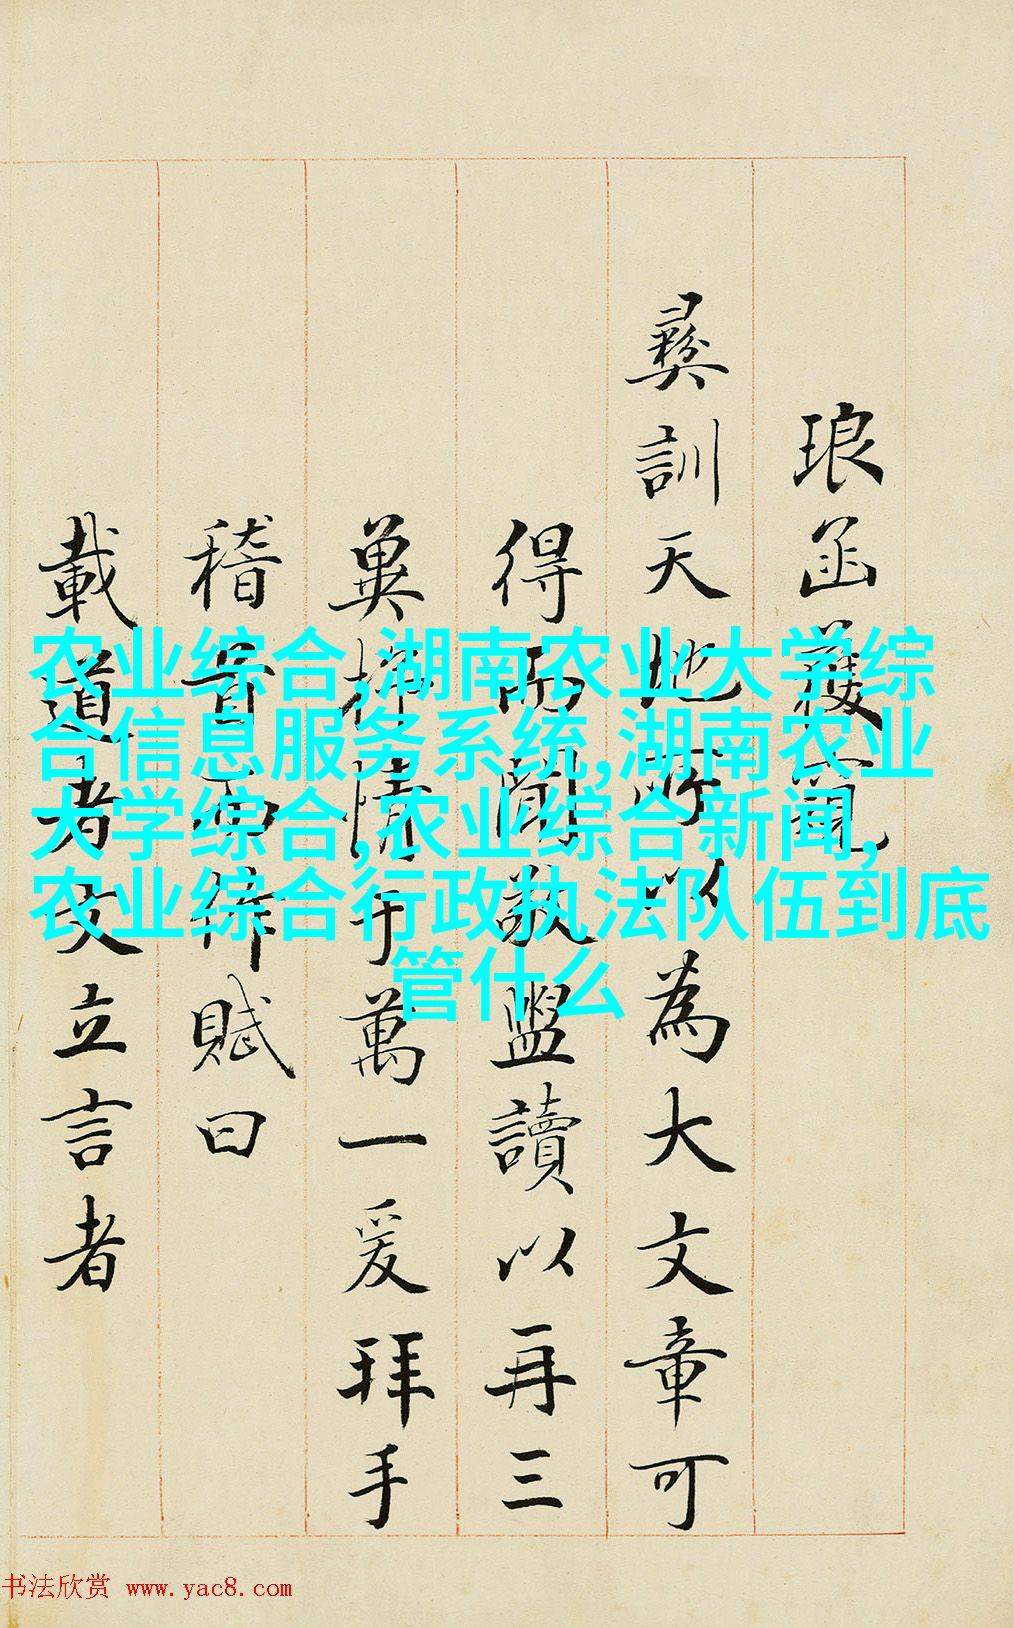 琅函護
彝訓天地所以為大文章可
得而聞敬盥讀以再三
冀摛隋于萬一爰拜手
稽首而獻賦曰
載道者文立言者
农业综合,湖南农业大学综
合信息服务系统,湖南农业
大学综合,农业综合新闻,
农业综合行政执法队伍到底
管什么
书法欣赏 www.yac8.com